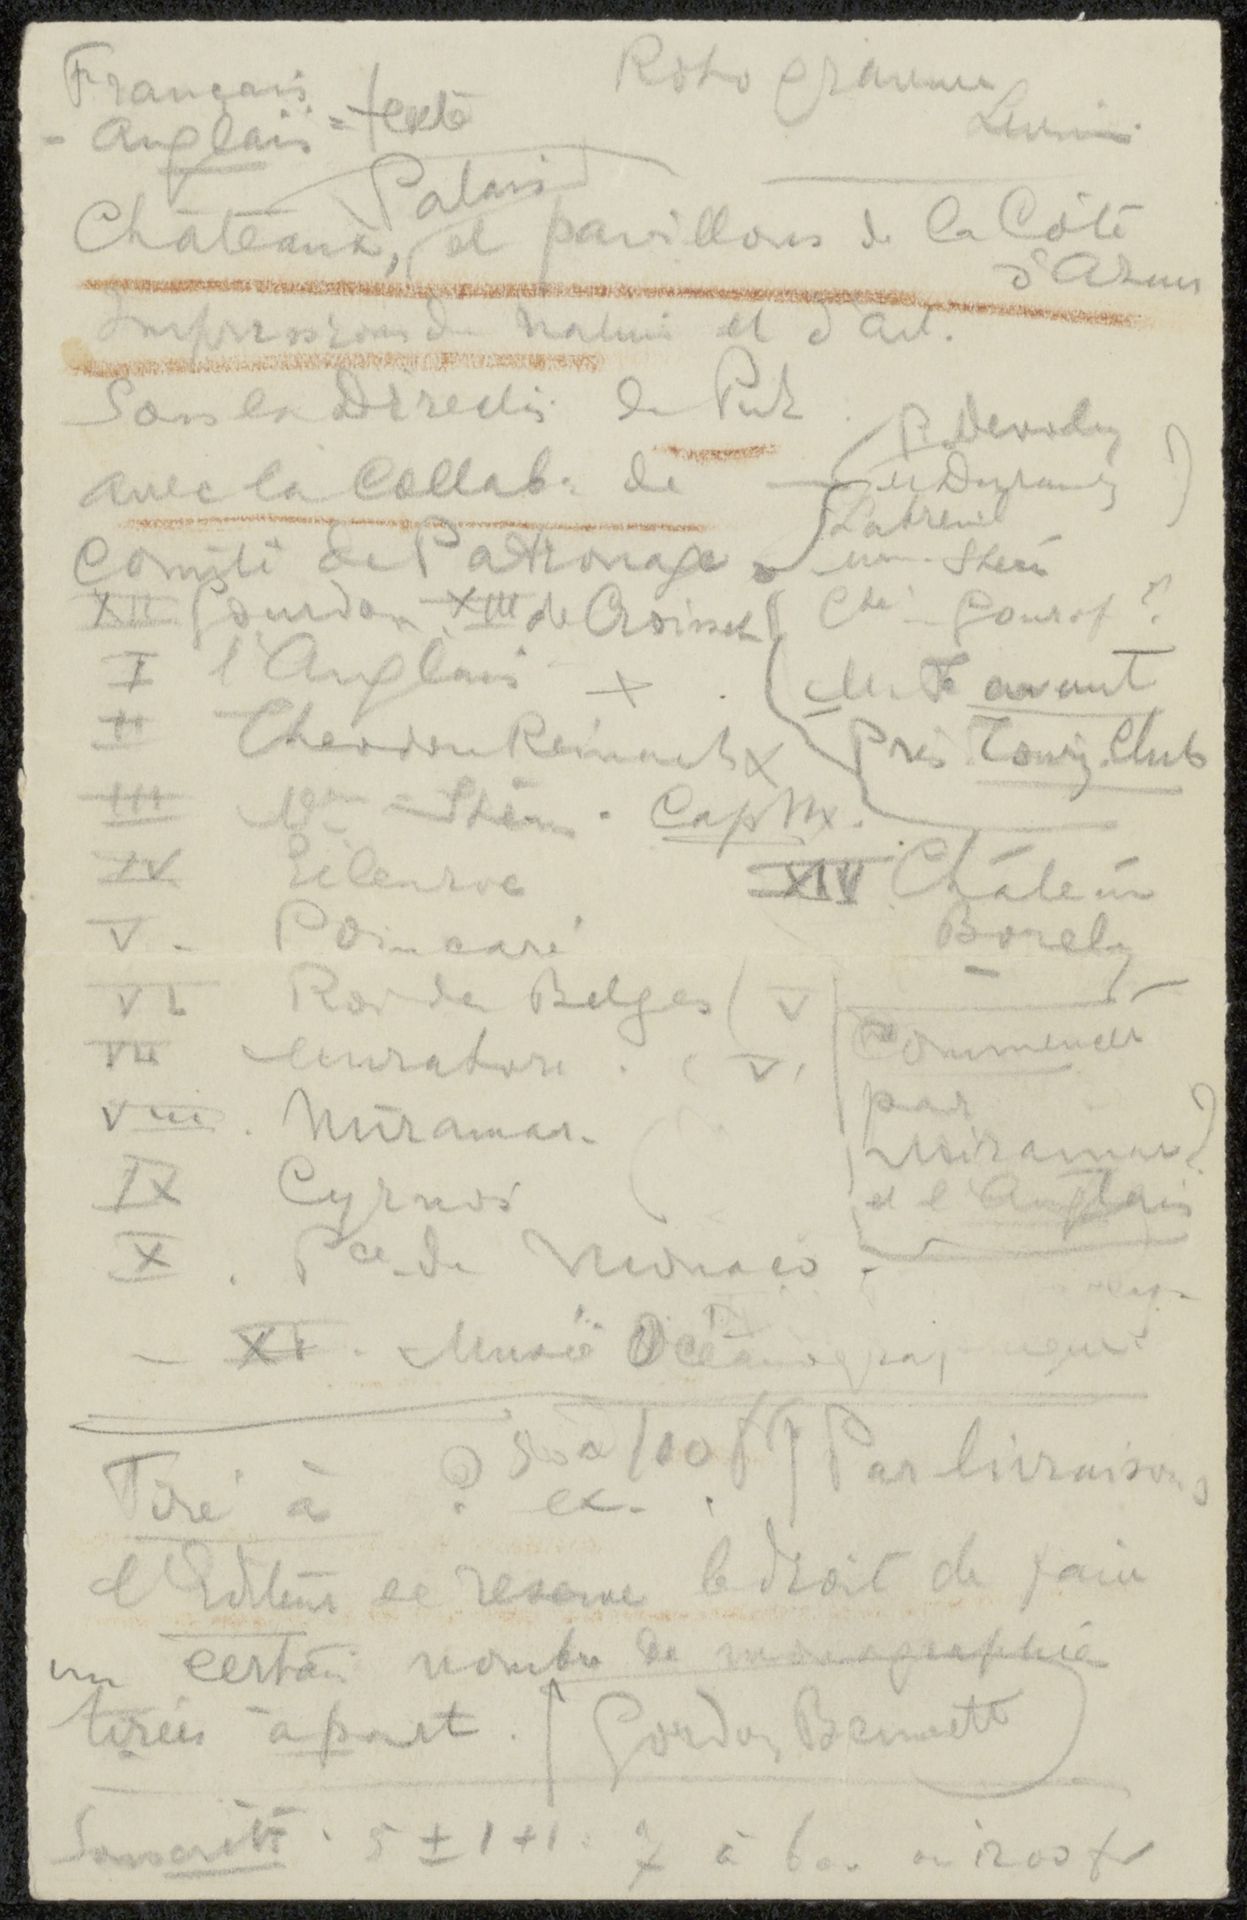 Français
- Anglais = texte
Roto gravure
Palais
Châteaux, et pavillons de la Côte
d'Azur
Impressions de nature et d'art.
Sous la Direction de
avec la Collabn de
P. Devoluy
Comité de Patronage
XII Gourdon XIII de Croisset
I l'Anglais X
avant
Prés. Touring. Club
II Theodore Reinach X
III Mme Stern. Cap M.
IV Eilenroc
XIV Château
Borely
V - Poincaré
VI Roi des Belges ( V
VII Muratore . ( V.
Commencer
par
Miramar ?
et l'Anglais
VIII . Miramar.
IX Cyrnos
X . Pce de Monaco .
- XI . Musée Océanographique
Tiré à ? ex. 50 à 100 f Par livraisons
l'Editeur se reserve le droit de faire
un certain nombre de monographies
tirées à part . Gordon Bennett
5 + 1 + 1 = 7 à 1200 fr